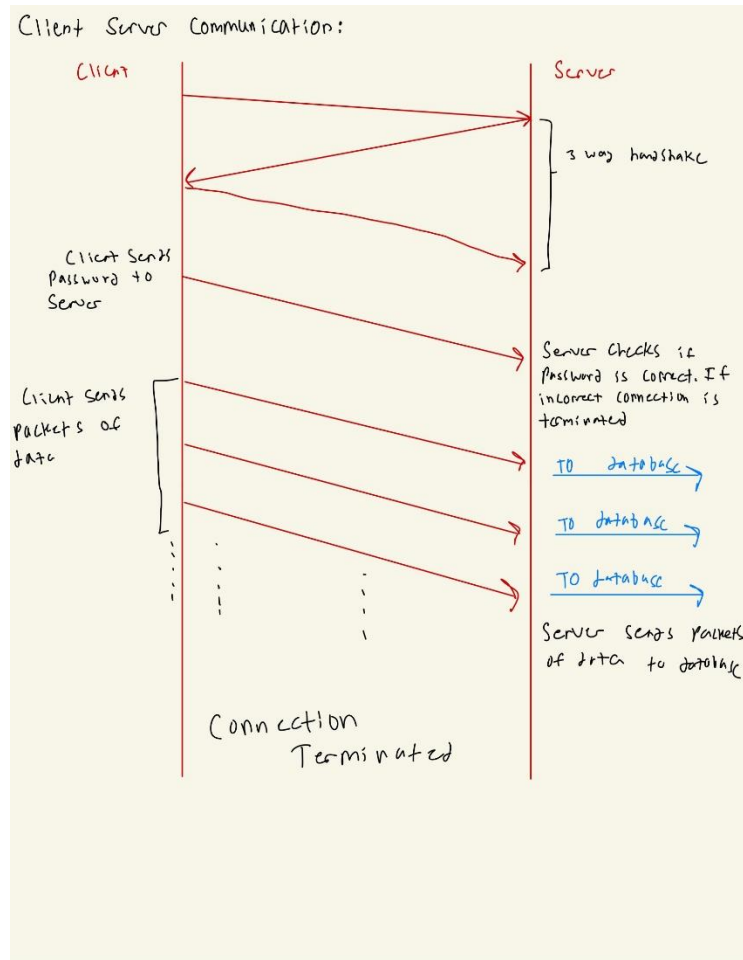 Client Server Communication:
Client
Server
3 way handshake
Client sends
Password to
Server
Server checks if
Password is correct. If
incorrect connection is
terminated
Client sends
packets of
data
TO database
TO database
TO database
Server sends packets
of data to database
Connection
Terminated